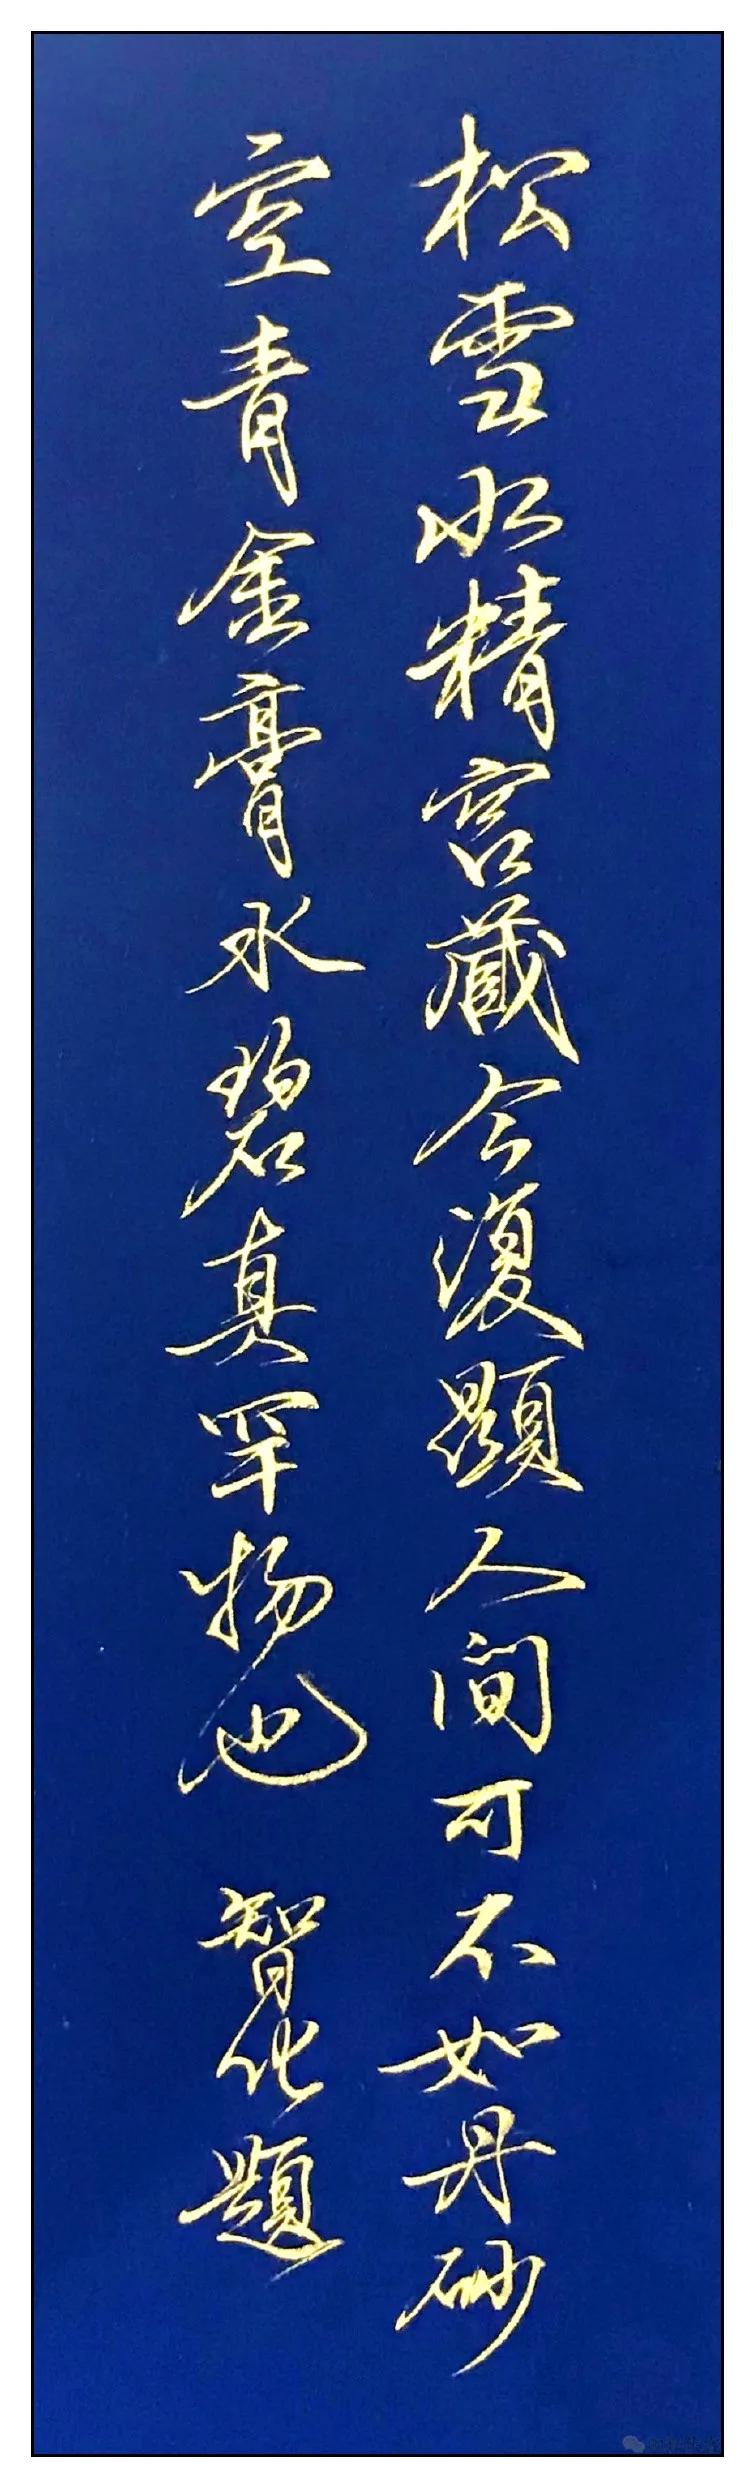 松雪水精宫藏今復顯人间可不如丹砂
空青金膏水碧真罕物也 智化題